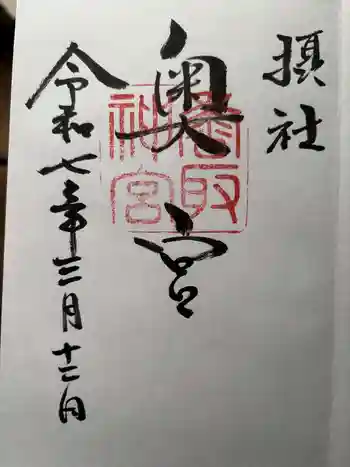 摂社
奥宮
香取
神宮
令和七年三月十二日